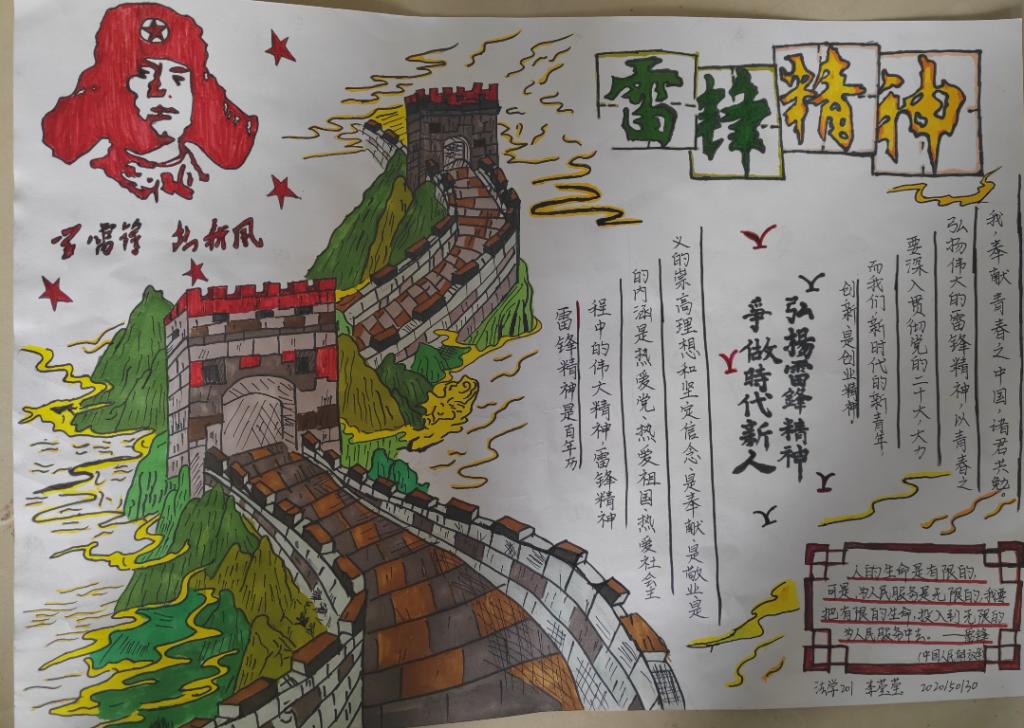 雷锋精神
学雷锋 树新风
雷锋精神是百年历
程中的伟大精神,雷锋精神
的内涵是热爱党,热爱祖国,热爱社会主
义的崇高理想和坚定信念,是奉献,是敬业,是
弘揚雷鋒精神
爭做時代新人
创新是创业精神,
而我们新时代的新青年,
要深入贯彻党的二十大,大力
弘扬伟大的雷锋精神,以青春之
我,奉献青春之中国,诸君共勉。
人的生命是有限的,
可是,为人民服务是无限的,我要
把有限的生命,投入到无限的
为人民服务中去。——雷锋
法学201 李莹莹 2020150130